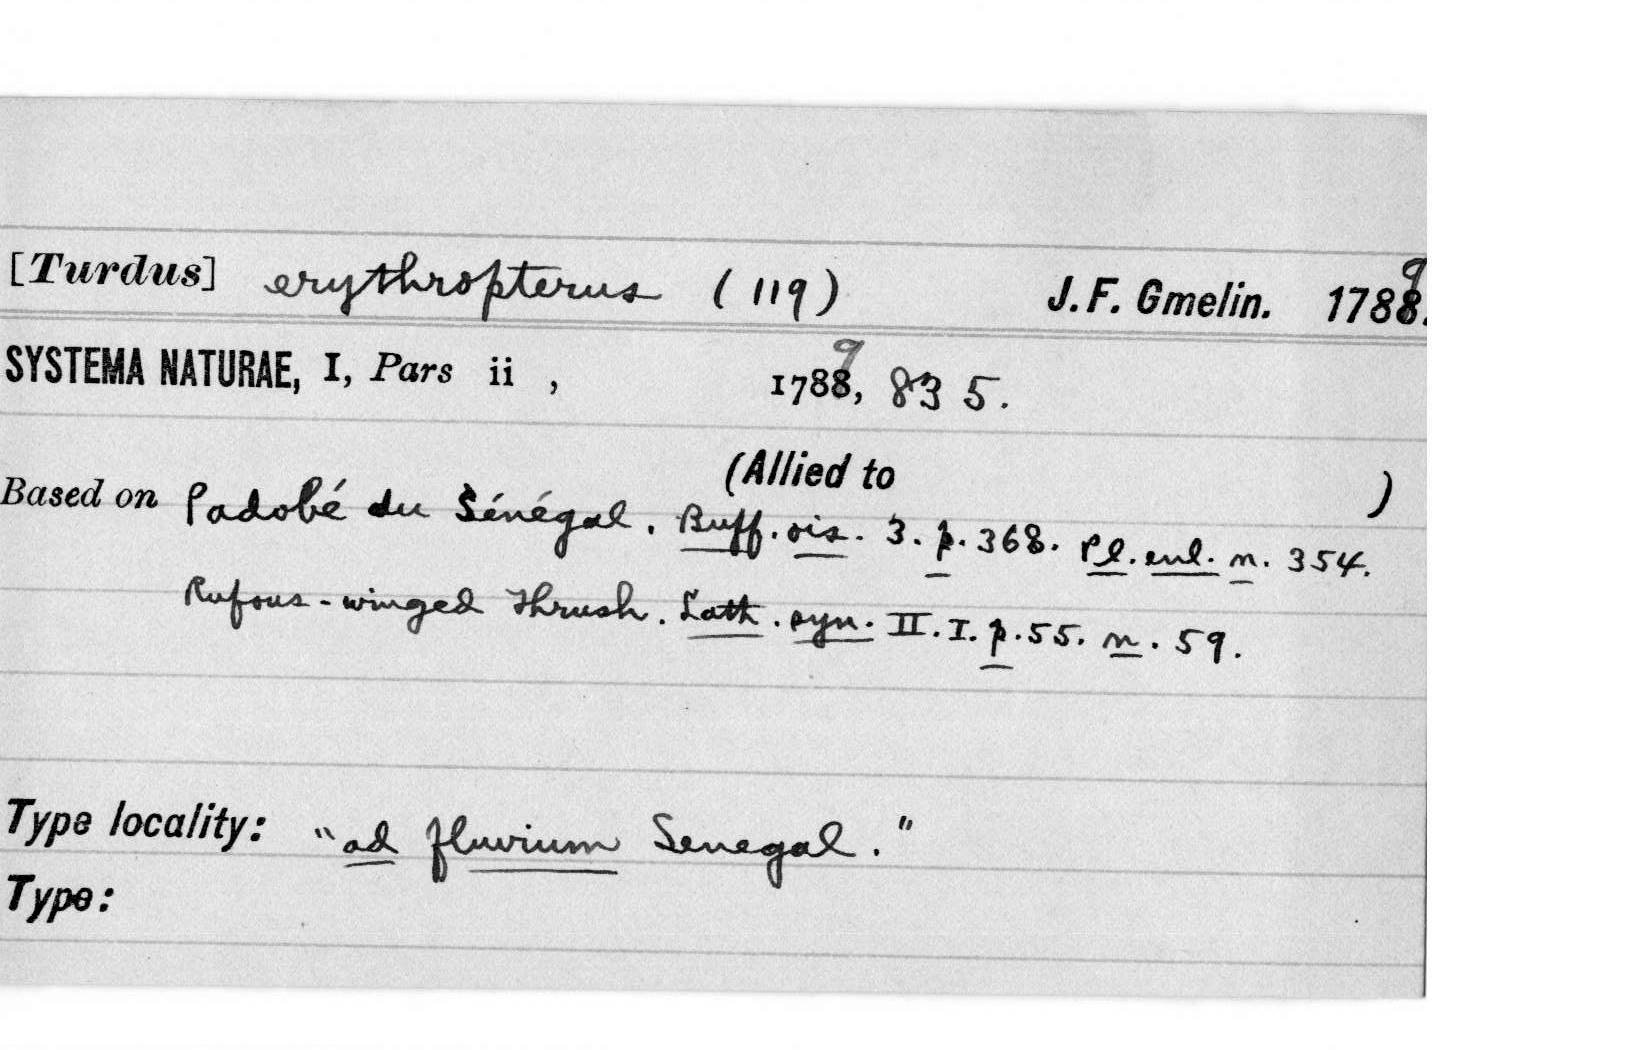 [Turdus] erythropterus (119) J. F. Gmelin. 1789.
SYSTEMA NATURAE, I, Pars ii , 1789, 835.
(Allied to )
Based on Padobé du Sénégal. Buff. ois. 3. p. 368. Pl. enl. n. 354.
Rufous-winged Thrush. Lath. syn. II. I. p. 55. n. 59.
Type locality: "ad fluvium Senegal."
Type: